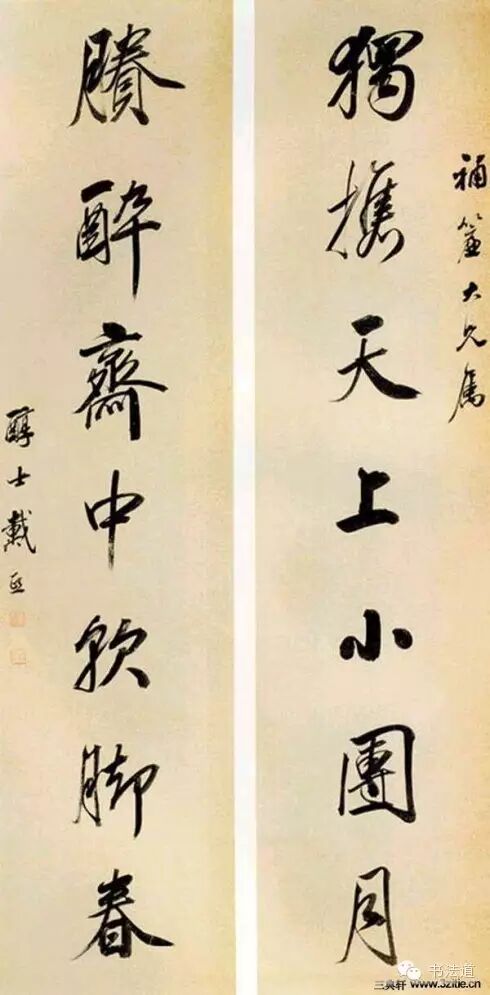 補大兄屬
獨攜天上小團月
賸醉齋中軟脚春
醇士戴熙
书法道
三典轩 www.3zitie.cn